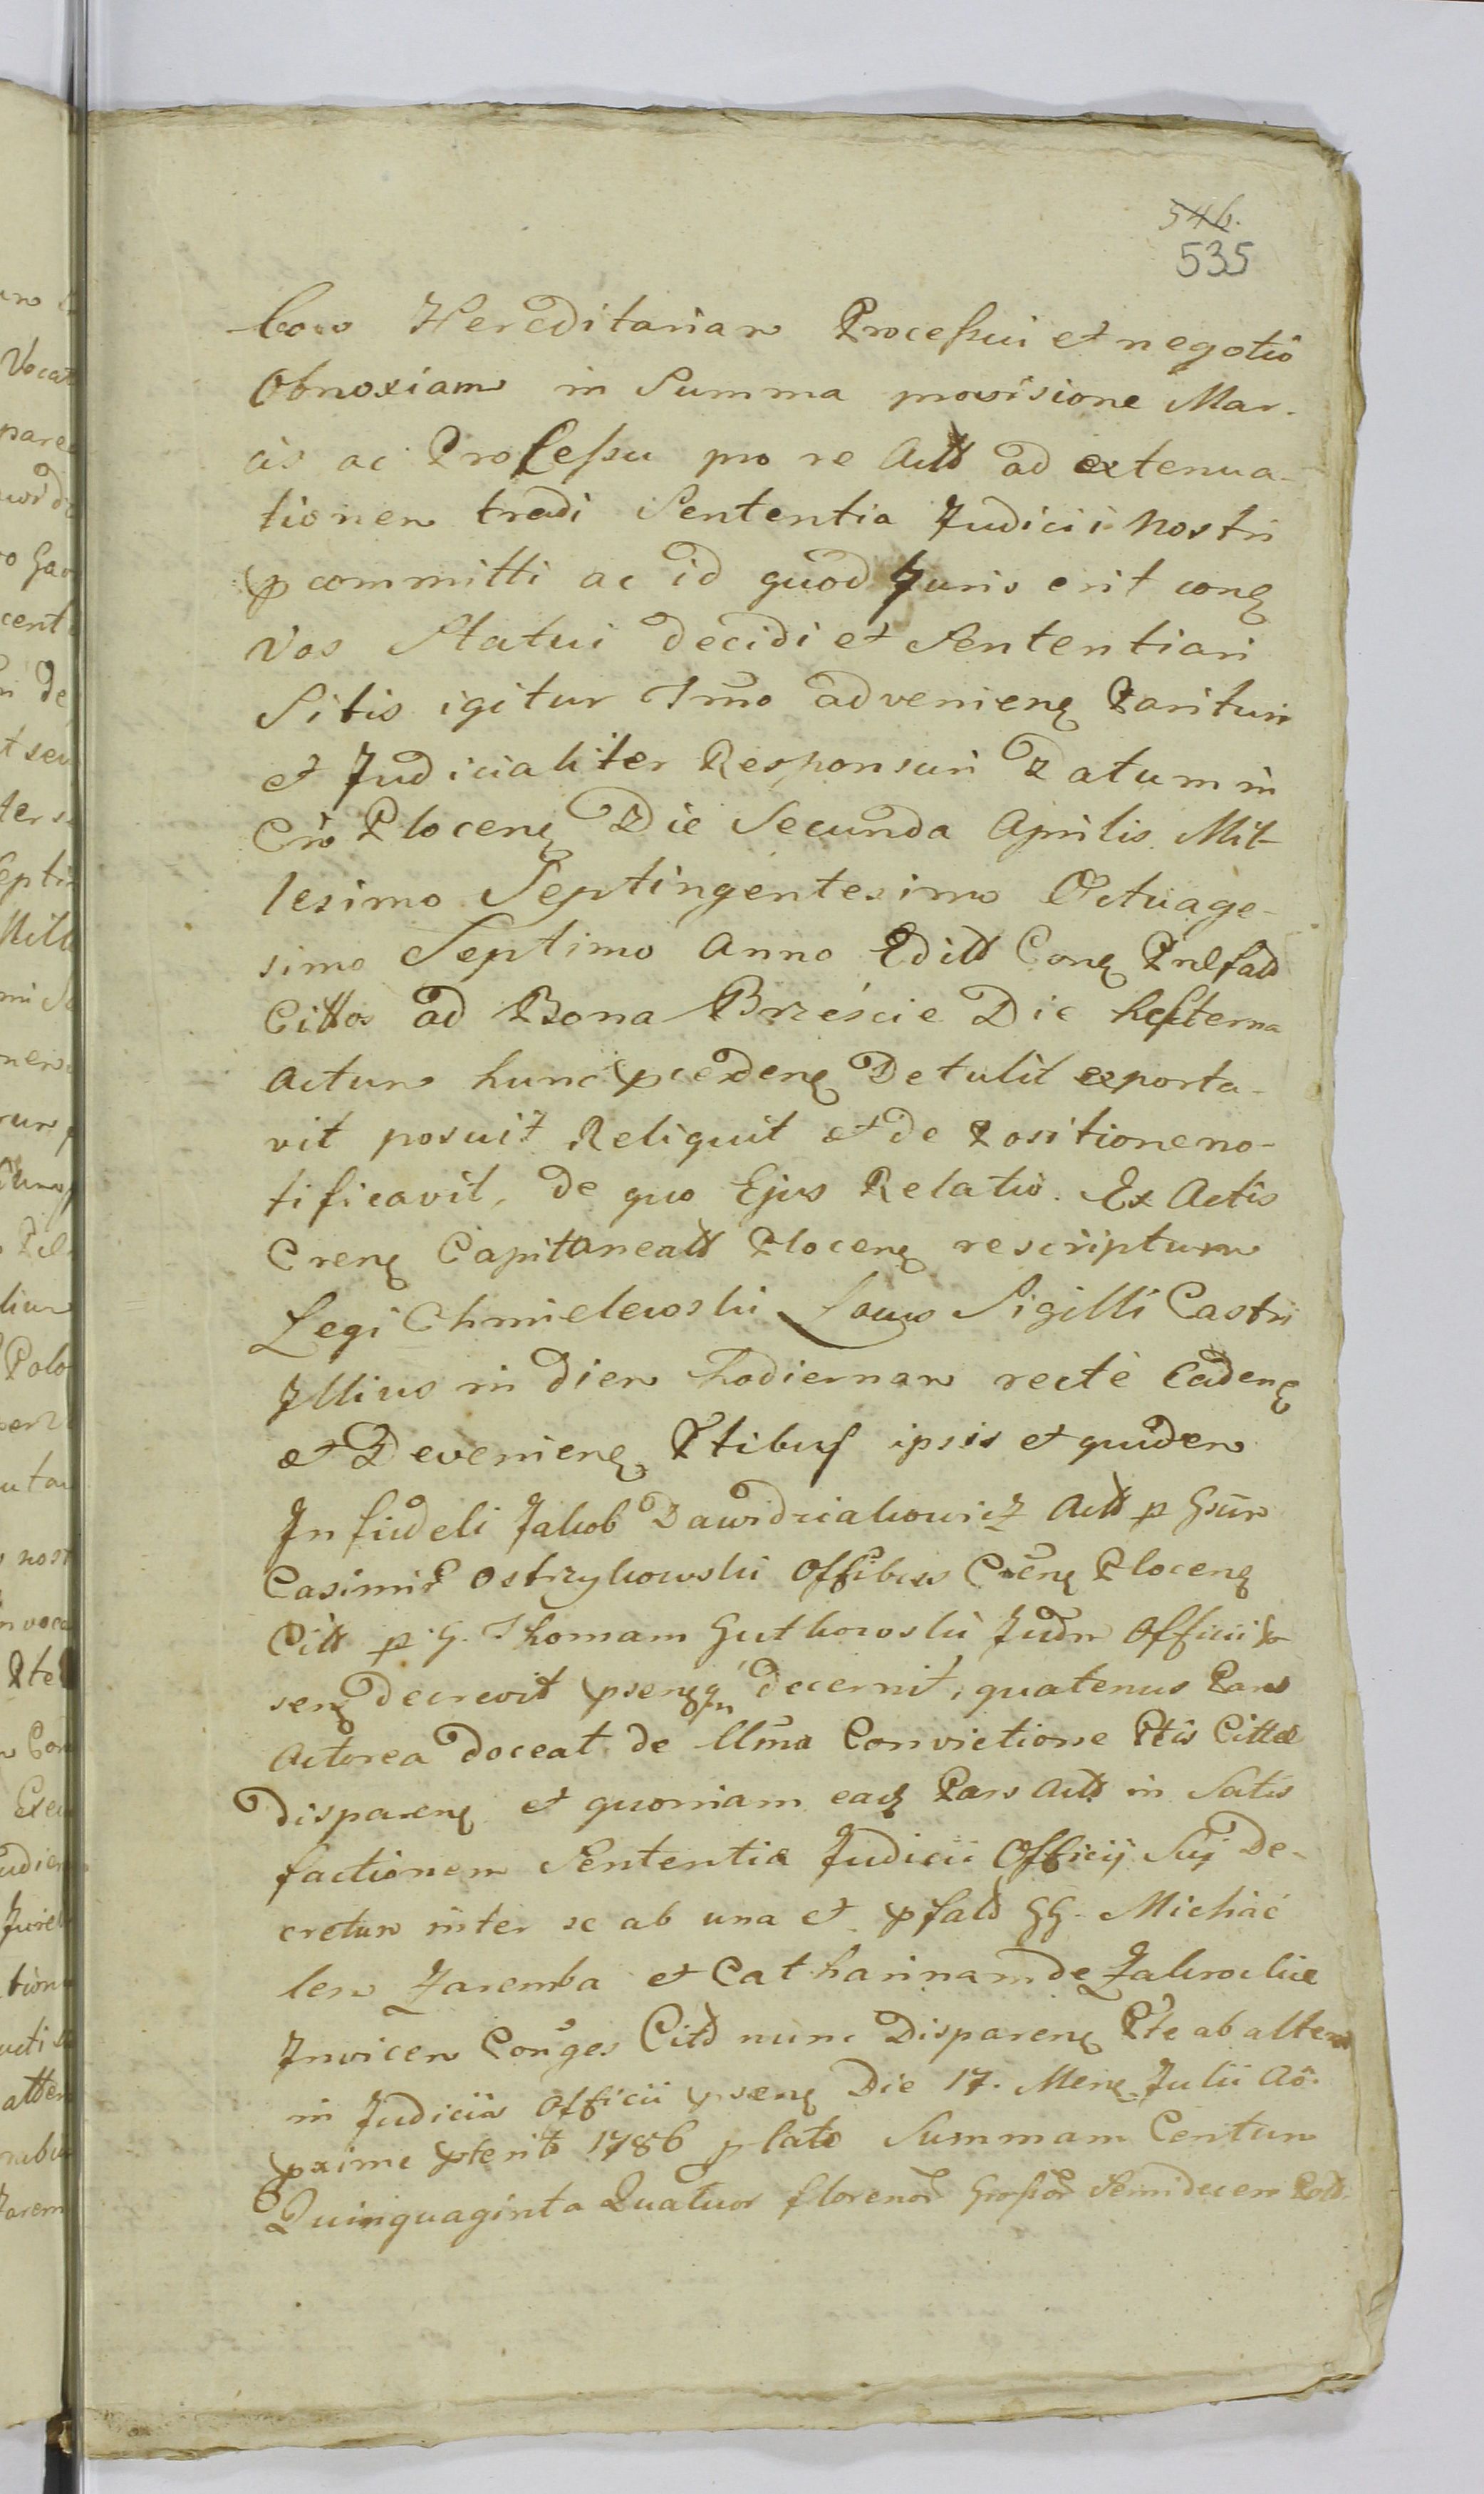 546.
535
Hereditariam Processui et negotio
Obnoxiam in Summa provisione Mar-
cis ac Processu pro re Actt ad extenua-
tionem tradi Sententia Judicii Nostri
committi ac id quod Juris erit conq
Vos Statui decidi et Sententiari
Sitis igitur Tmo advenienq Parituri
et Judicialiter Responsuri Datum in
Cro Plocenq Die Secunda Aprilis Mil-
lesimo Septingentesimo Octuage-
simo Septimo Anno Editt Conq
ad Bona Brzeście Die hesterna
Actum hunc pcedenq Detulit exporta-
vit posuit Reliquit et de Positione no-
tificavit, de quo Ejus Relatio. Ex Actis
Crenq Capitaneatt Plocenq rescriptum
Legi Chmielewski Locus Sigilli Castri
Illius in diem hodiernam recte Cadenq
et Devenienq Ptibus ipsis et quidem
Infideli Jakob Dawidziakowicz Actt p Gsum
Casimir Ostrzykowski Offibus Crenq Plocenq
Citt p G. Thomam Gutkowski Judm Officii p
senq decrevit psenq decernit, quatenus Pars
Actorea doceat de llma Convictione Ptis Cittae
Disparenq et quoniam eadq Pars Actt in Satis
factionem Sententiae Judicii Officij Suj De-
cretum inter se ab una et pfatt GG. Michae
lem Zaremba et Catharinam de Zakrockie
Invicem Conges Citt nunc Disparenq Pte ab altera
in Judiciis Officii psenq Die 17. Menq Julii Ao.
pxime pterit 1786 plato Summam Centum
Quinquaginta Quatuor florenor Grossor Semidecem Poll.